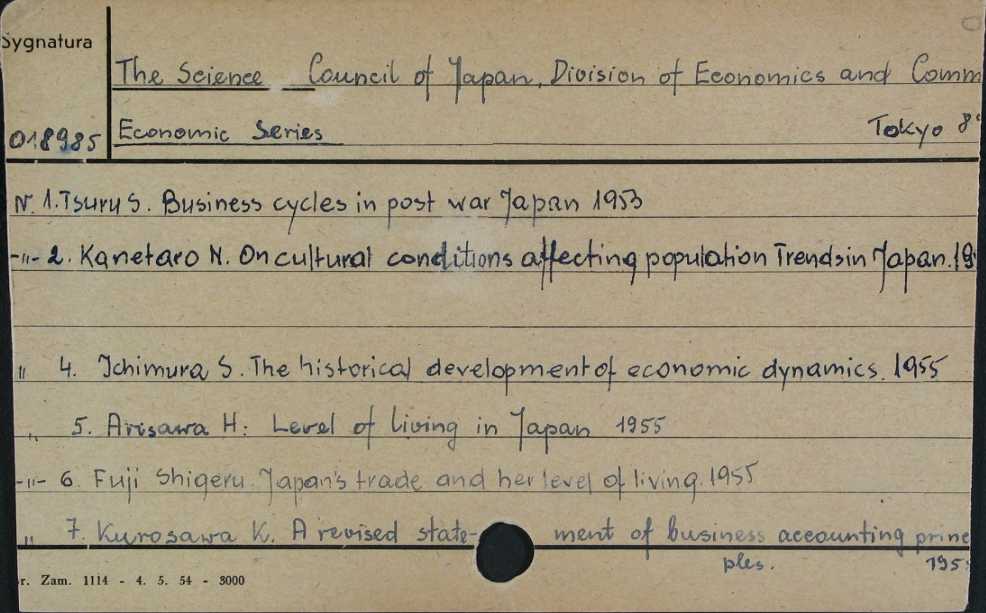 Sygnatura
The Science Council of Japan, Division of Economics and Comm
018985 Economic Series Tokyo 8°
Nr. 1. Tsuru S. Business cycles in post war Japan 1953
-"- 2. Kanetaro N. On cultural conditions affecting population Trends in Japan. 19
" 4. Ichimura S. The historical development of economic dynamics. 1955
" 5. Arisawa H: Level of living in Japan 1955
-"- 6. Fuji Shigeru Japan's trade and her level of living. 1955
" 7. Kurosawa K. A revised state- ment of business accounting princ
ples. 195
r. Zam. 1114 - 4. 5. 54 - 3000